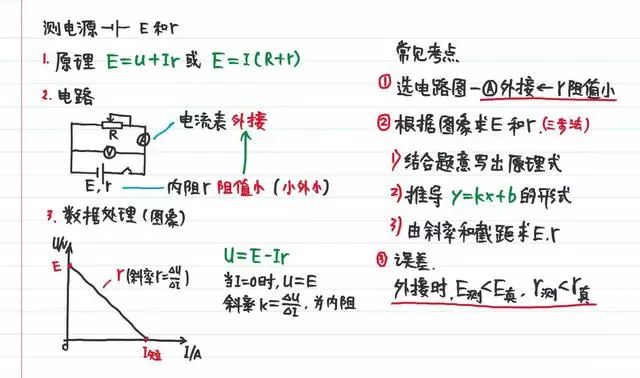 测电源 E和r
1. 原理 E=U+Ir 或 E=I(R+r)
2. 电路
R
A
V
E,r
电流表外接
内阻r 阻值小(小外小)
3. 数据处理(图象)
U/V
E
r(斜率r=ΔU/ΔI)
0
I短
I/A
U=E-Ir
当I=0时,U=E
斜率k=ΔU/ΔI,为内阻
常见考点
① 选电路图-Ⓐ外接←r阻值小
② 根据图象求E和r.(三步法)
1) 结合题意写出原理式
2) 推导 y=kx+b 的形式
3) 由斜率和截距求E.r
③ 误差.
外接时,E测<E真,r测<r真